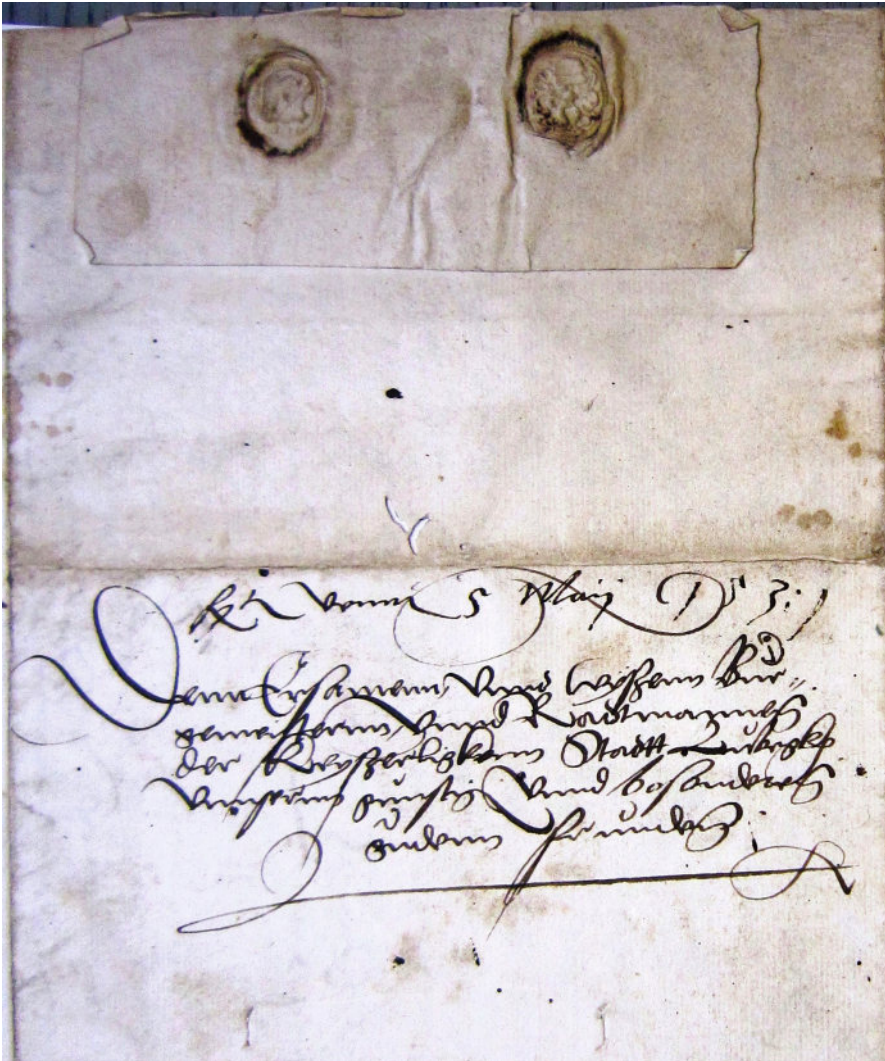 Venn 5 Maij 153:
Denn Ersamenn Vnnd weyßenn Bur=
gemeisternn Vnnd Radtmannen
der Keyßerligkenn Stadtt Lubegke
Vnnsernn gunstig Vnnd bosonderen
gudenn frunden